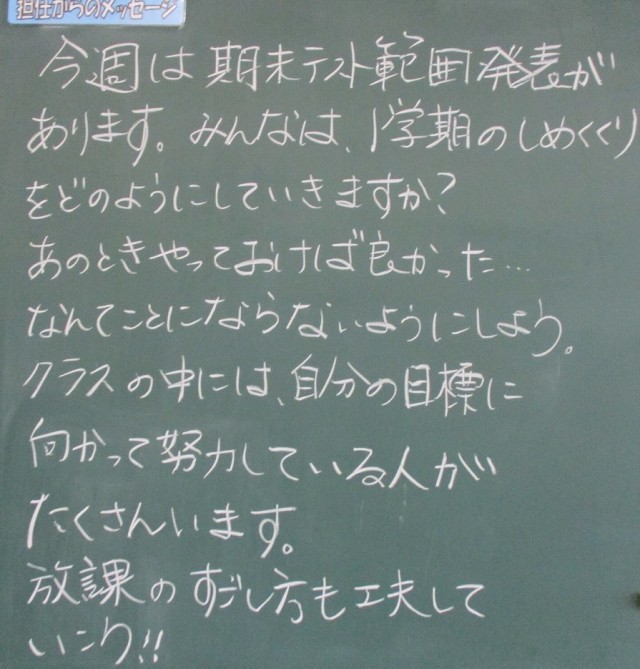 担任からのメッセージ
今週は期末テスト範囲発表が
あります。みんなは、1学期のしめくくり
をどのようにしていきますか?
あのときやっておけば良かった…
なんてことにならないようにしよう。
クラスの中には、自分の目標に
向かって努力している人が
たくさんいます。
放課のすごし方も工夫して
いこう!!